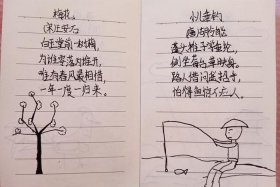 梅花
宋王安石
白玉堂前一树梅,
为谁零落为谁开.
唯有春风最相惜,
一年一度一归来.
小儿垂钓
唐胡令能
蓬头稚子学垂纶,
侧坐莓苔草映身.
路人借问遥招手,
怕得鱼惊不应人.